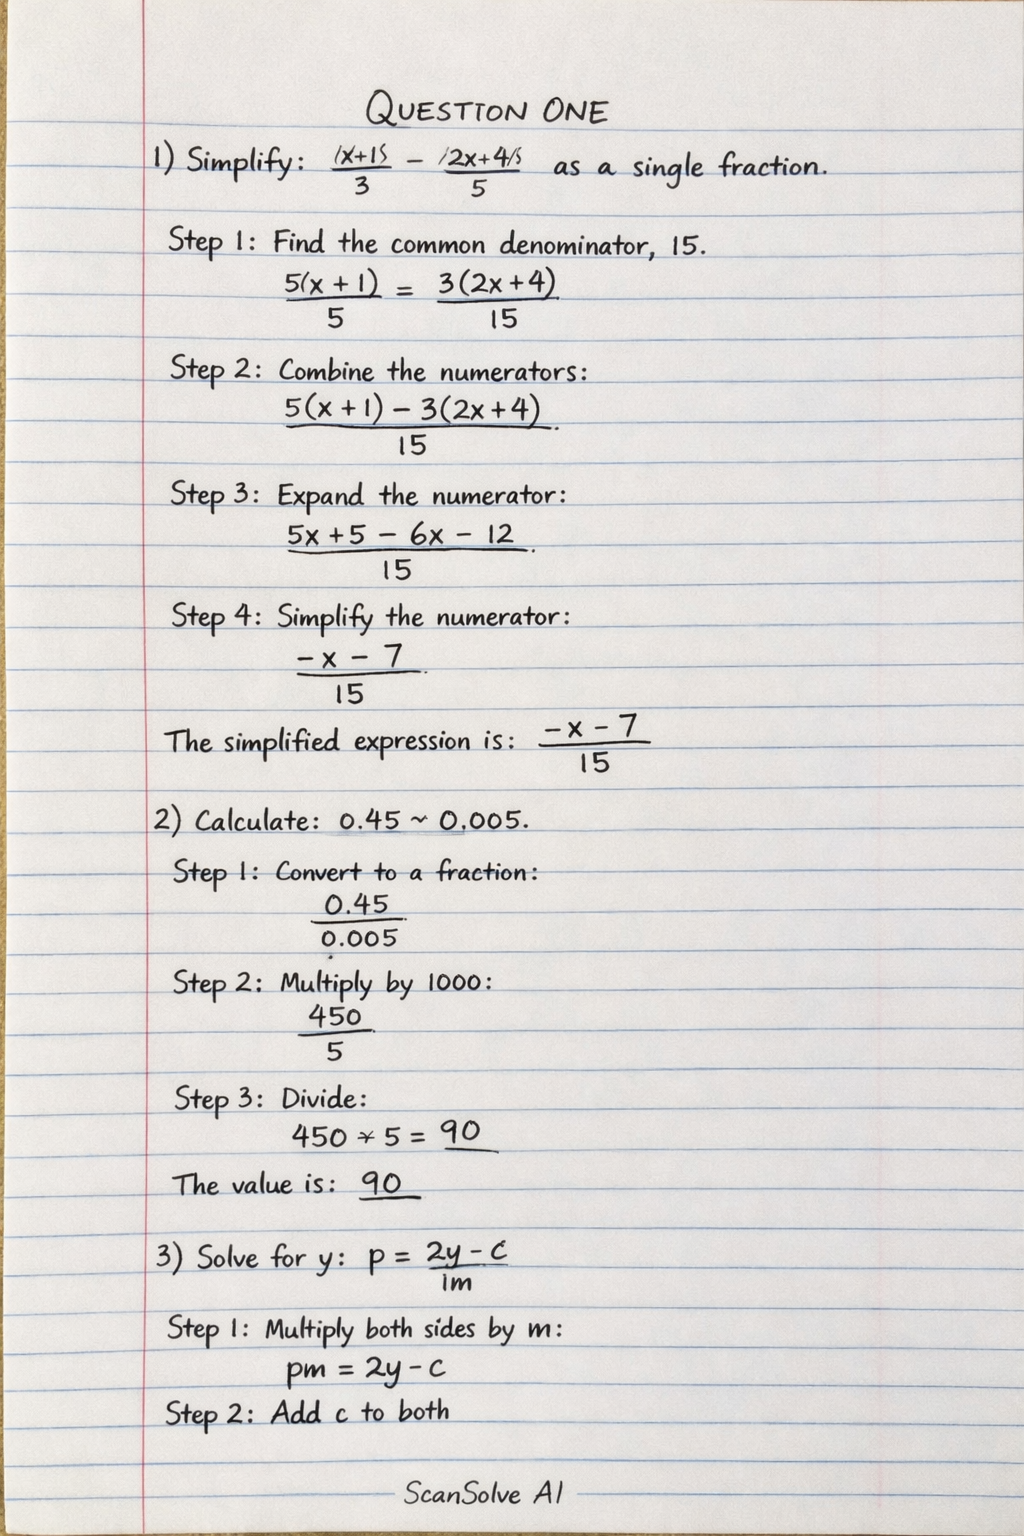 QUESTION ONE
1) Simplify: (x+1)/3 − (2x+4)/5 as a single fraction.
Step 1: Find the common denominator, 15.
5(x + 1)/5 = 3(2x+4)/15
Step 2: Combine the numerators:
5(x + 1) − 3(2x+4)/15
Step 3: Expand the numerator:
5x + 5 − 6x − 12/15
Step 4: Simplify the numerator:
−x − 7/15
The simplified expression is: −x − 7/15
2) Calculate: 0.45 ~ 0.005.
Step 1: Convert to a fraction:
0.45/0.005
Step 2: Multiply by 1000:
450/5
Step 3: Divide:
450 * 5 = 90
The value is: 90
3) Solve for y: p = 2y − c/1m
Step 1: Multiply both sides by m:
pm = 2y − c
Step 2: Add c to both
ScanSolve AI